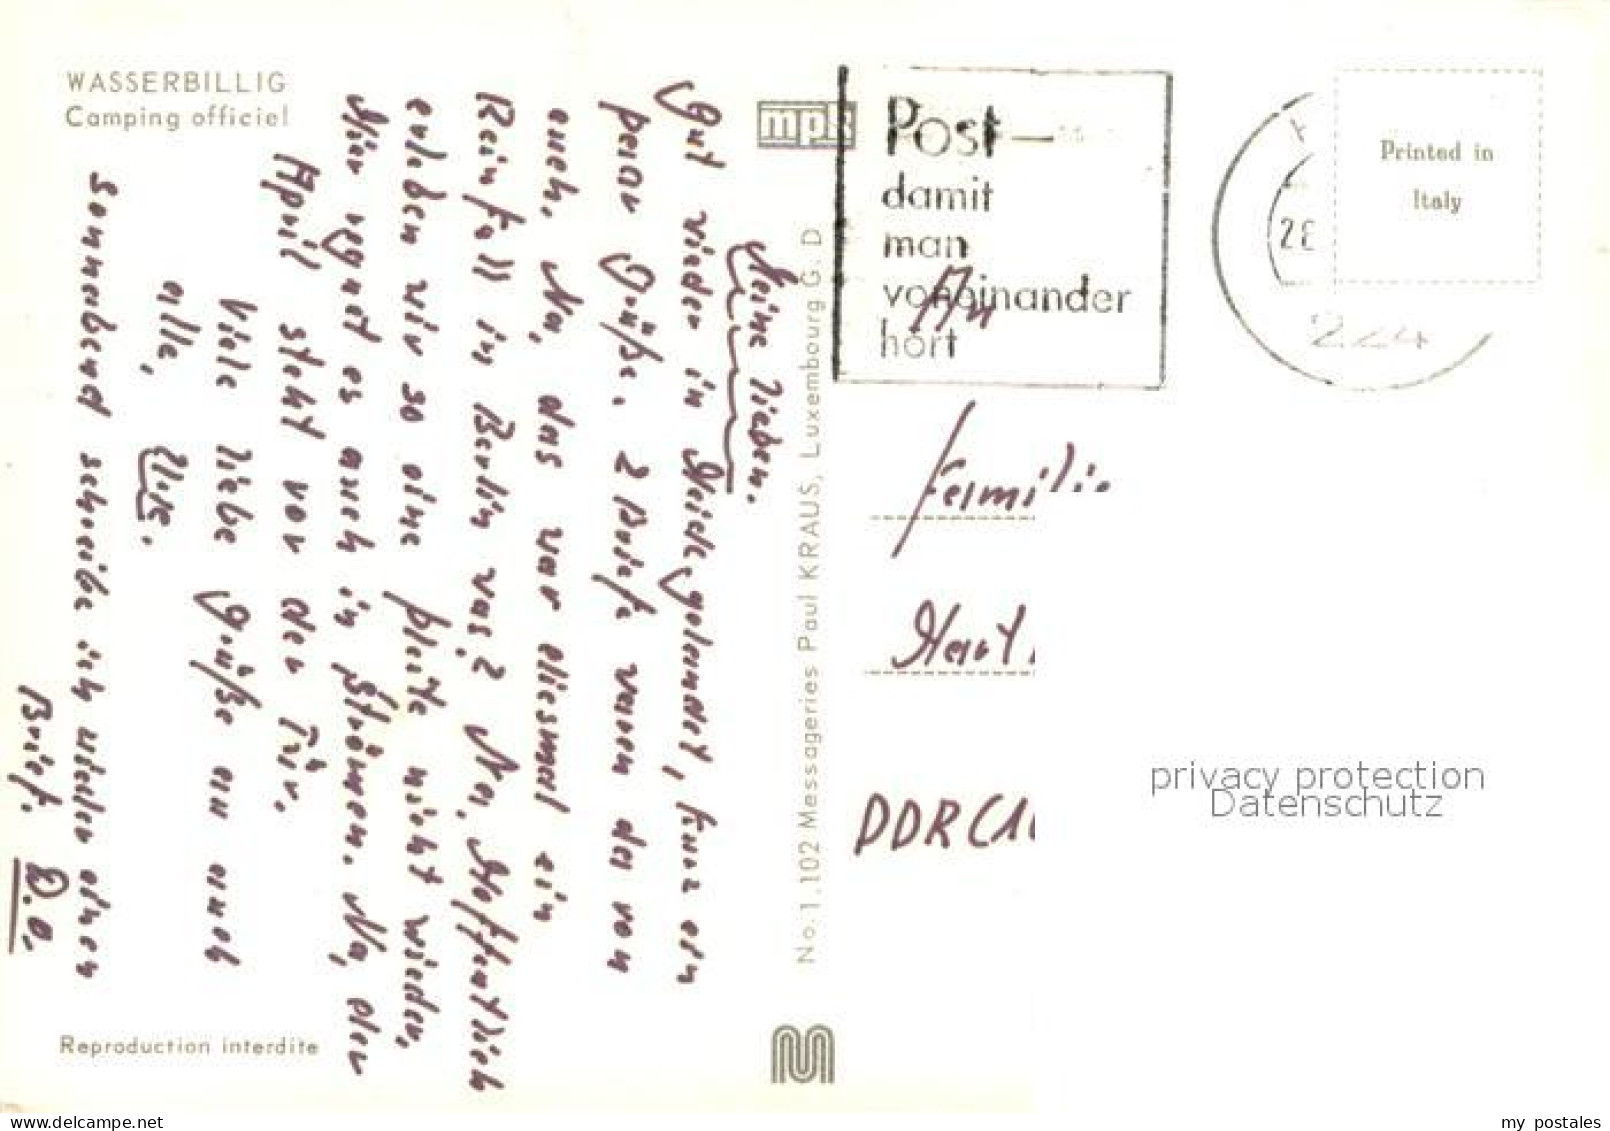 WASSERBILLIG
Camping officiel
Meine Lieben.
Gut wieder in gelandet, kurz ein
paar Grüße. 2 Briefe waren da von
euch. Na, das war diesmal ein
Reinfall in Berlin was? Na, Hoffentlich
erleben wir so eine pleite nicht wieder.
Hier regnet es auch in Strömen. Na, der
April steht vor der Tür.
Viele liebe Grüße an euch
alle,
Sonnabend schreibe ich wieder einen
Brief. D.O.
Reproduction interdite
No. 1.102 Messageries Paul KRAUS, Luxembourg G. D
mpk
Post-
damit
man
voneinander
hört
224
Printed in
Italy
An
Familie
DDR
privacy protection
Datenschutz
www.delcampe.net
my_postales